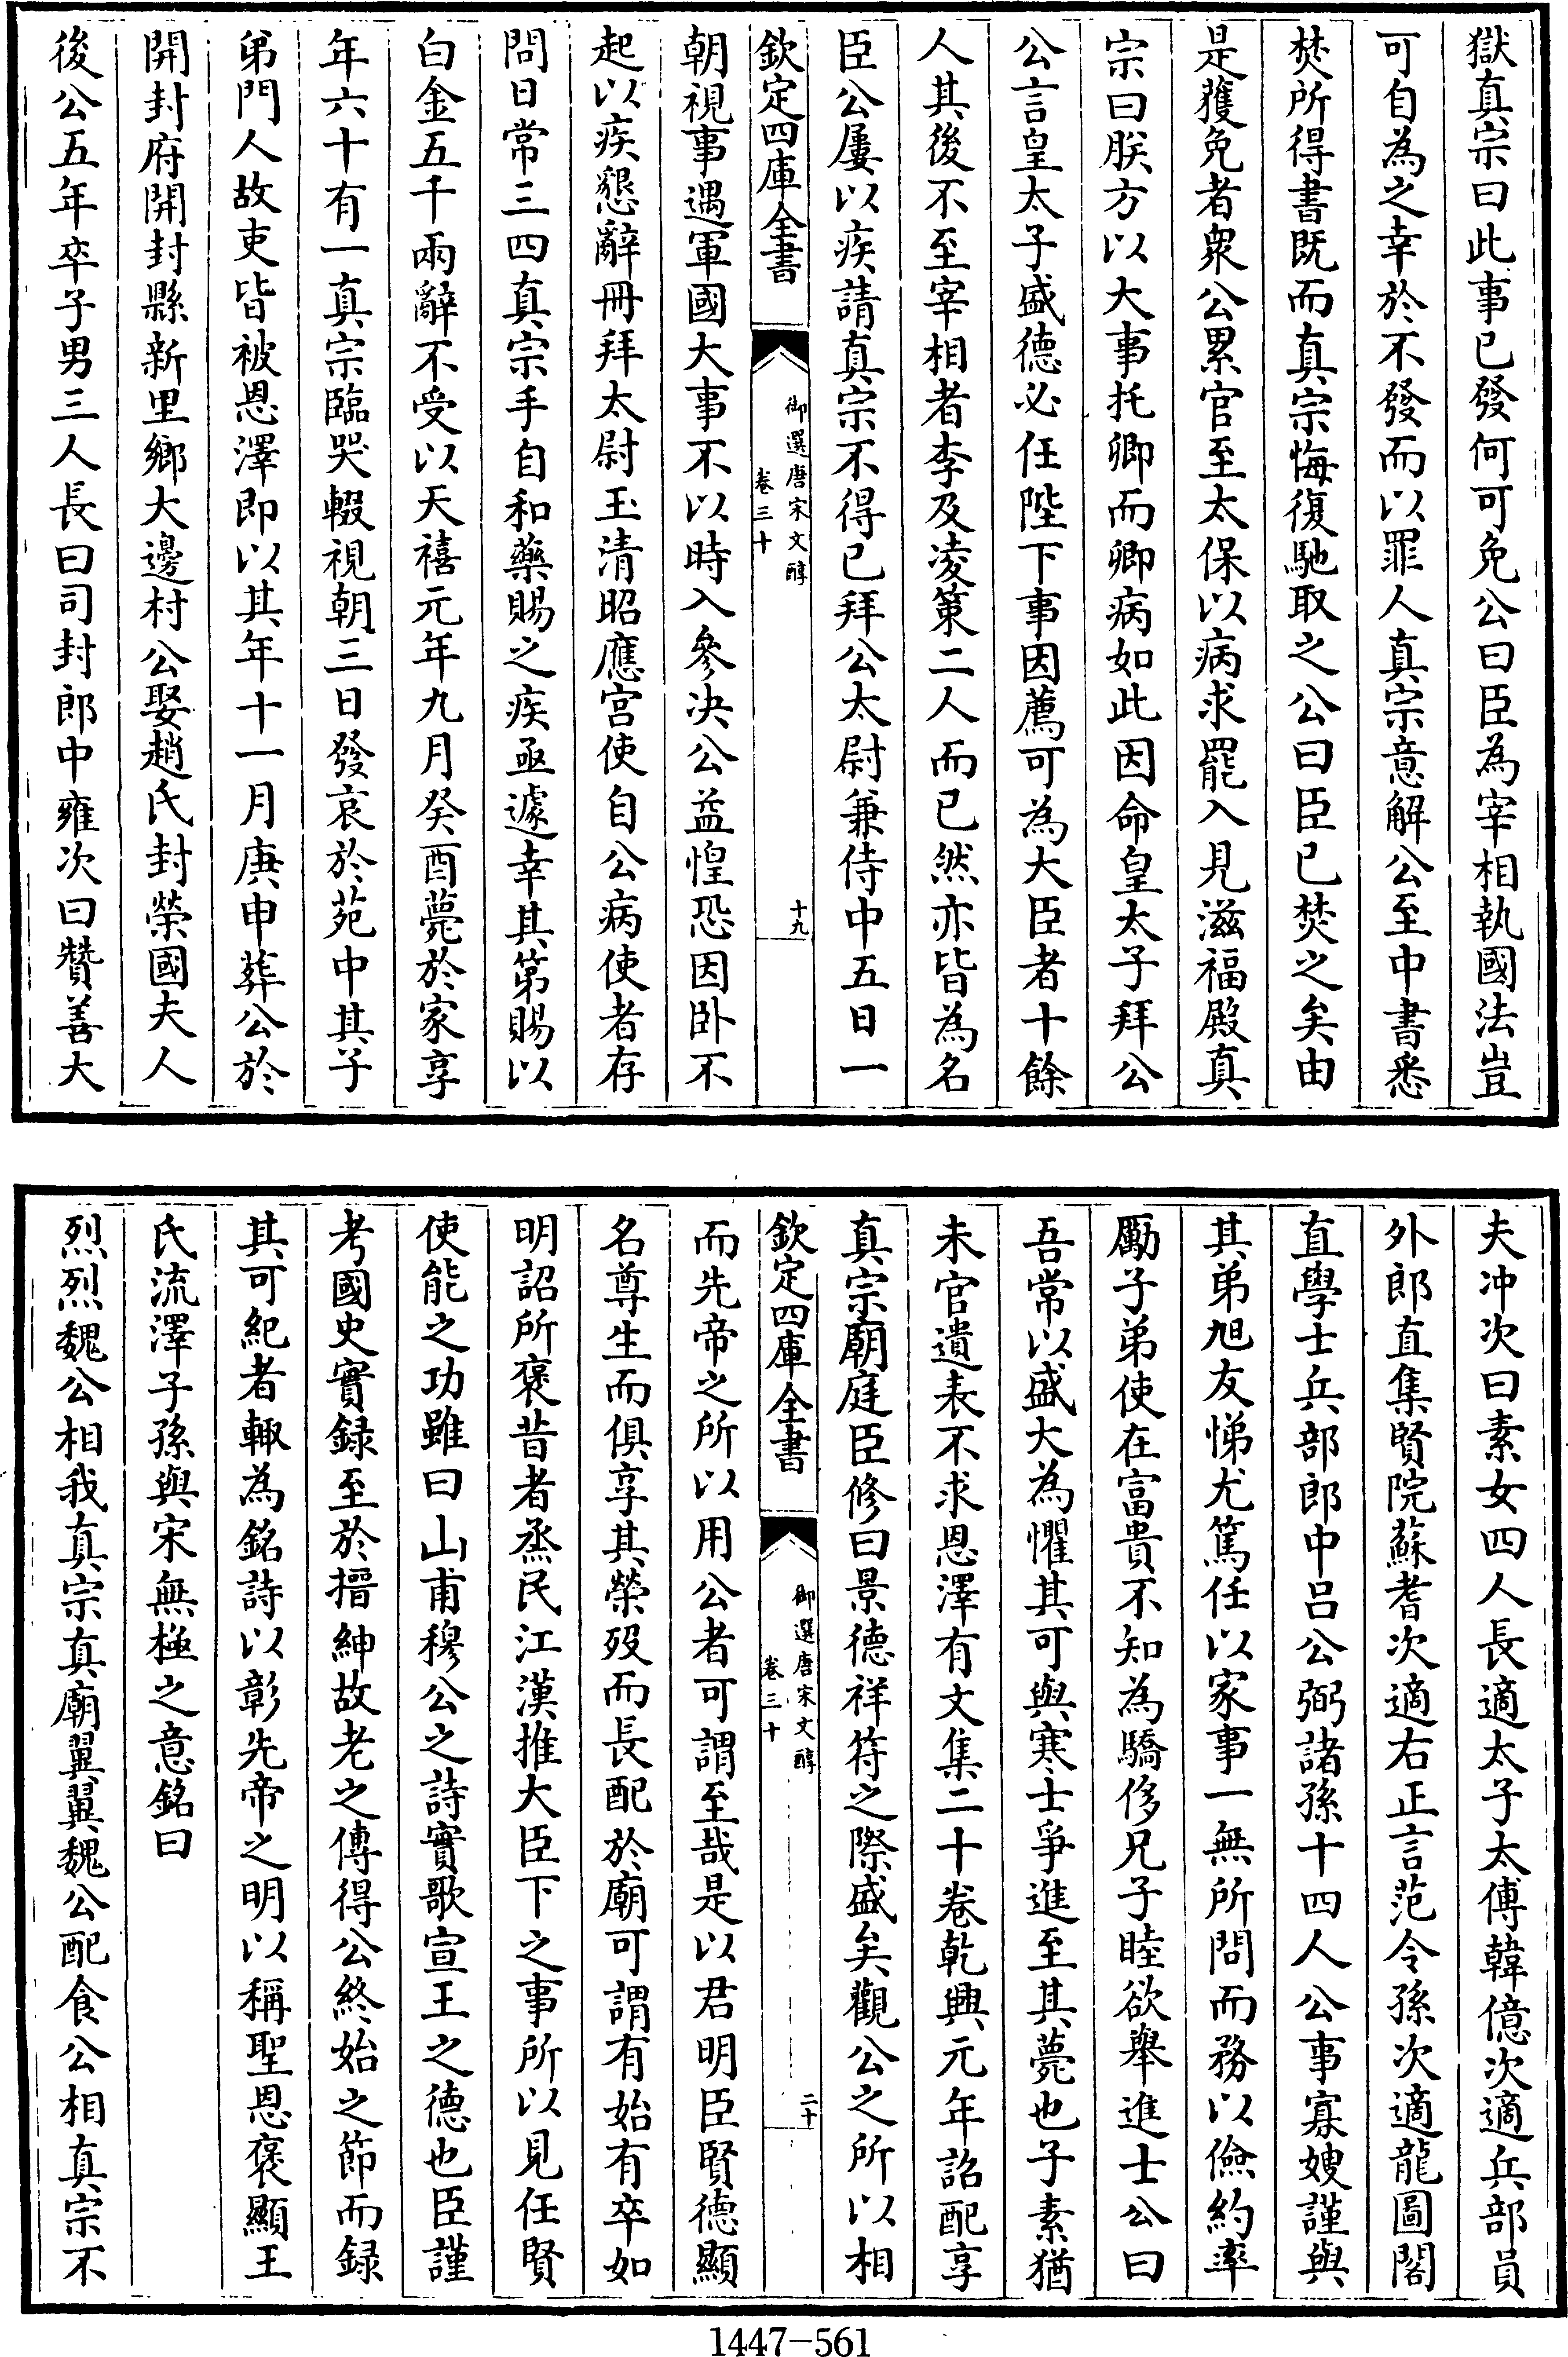 獄真宗曰此事已發何可免公曰臣為宰相執國法豈
可自為之幸於不發而以罪人真宗意解公至中書悉
焚所得書既而真宗悔復馳取之公曰臣已焚之矣由
是獲免者衆公累官至太保以病求罷入見滋福殿真
宗曰朕方以大事托卿而卿病如此因命皇太子拜公
公言皇太子盛德必任陛下事因薦可為大臣者十餘
人其後不至宰相者李及凌策二人而已然亦皆為名
臣公屢以疾請真宗不得已拜公太尉兼侍中五日一
欽定四庫全書
御選唐宋文醇
卷三十
十九
朝視事遇軍國大事不以時入參決公益惶恐因卧不
起以疾懇辭冊拜太尉玉清昭應宮使自公病使者存
問日常三四真宗手自和藥賜之疾亟遽幸其第賜以
白金五千兩辭不受以天禧元年九月癸酉薨於家享
年六十有一真宗臨哭輟視朝三日發哀於苑中其子
弟門人故吏皆被恩澤即以其年十一月庚申葬公於
開封府開封縣新里鄉大邊村公娶趙氏封榮國夫人
後公五年卒子男三人長曰司封郎中雍次曰贊善大
夫冲次曰素女四人長適太子太傅韓億次適兵部員
外郎直集賢院蘇耆次適右正言范令孫次適龍圖閣
直學士兵部郎中呂公弼諸孫十四人公事寡嫂謹與
其弟旭友悌尤篤任以家事一無所問而務以儉約率
勵子弟使在富貴不知為驕侈兄子睦欲舉進士公曰
吾常以盛大為懼其可與寒士爭進至其薨也子素猶
未官遺表不求恩澤有文集二十卷乾興元年詔配享
真宗廟庭臣修曰景德祥符之際盛矣觀公之所以相
欽定四庫全書
御選唐宋文醇
卷三十
二十
而先帝之所以用公者可謂至哉是以君明臣賢德顯
名尊生而俱享其榮歿而長配於廟可謂有始有卒如
明詔所褒昔者烝民江漢推大臣下之事所以見任賢
使能之功雖曰山甫穆公之詩實歌宣王之德也臣謹
考國史實録至於搢紳故老之傳得公終始之節而録
其可紀者輙為銘詩以彰先帝之明以稱聖恩褒顯王
氏流澤子孫與宋無極之意銘曰
烈烈魏公相我真宗真廟翼翼魏公配食公相真宗不
1447-561